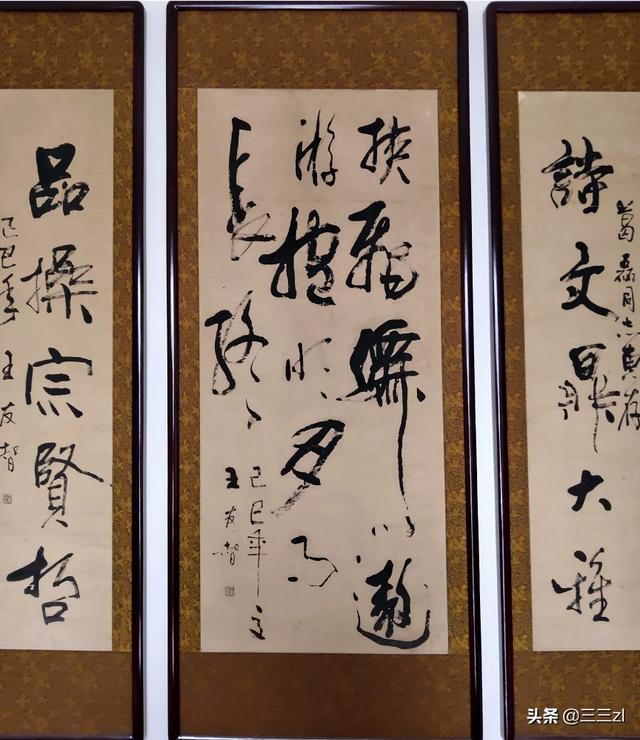 葛磊同志惠存
詩文鼎大雅
挾飛僊以遨
游抱明月而
長終
己巳年
王友智
品操宗賢哲
己巳年 王友智
头条 @三三zl